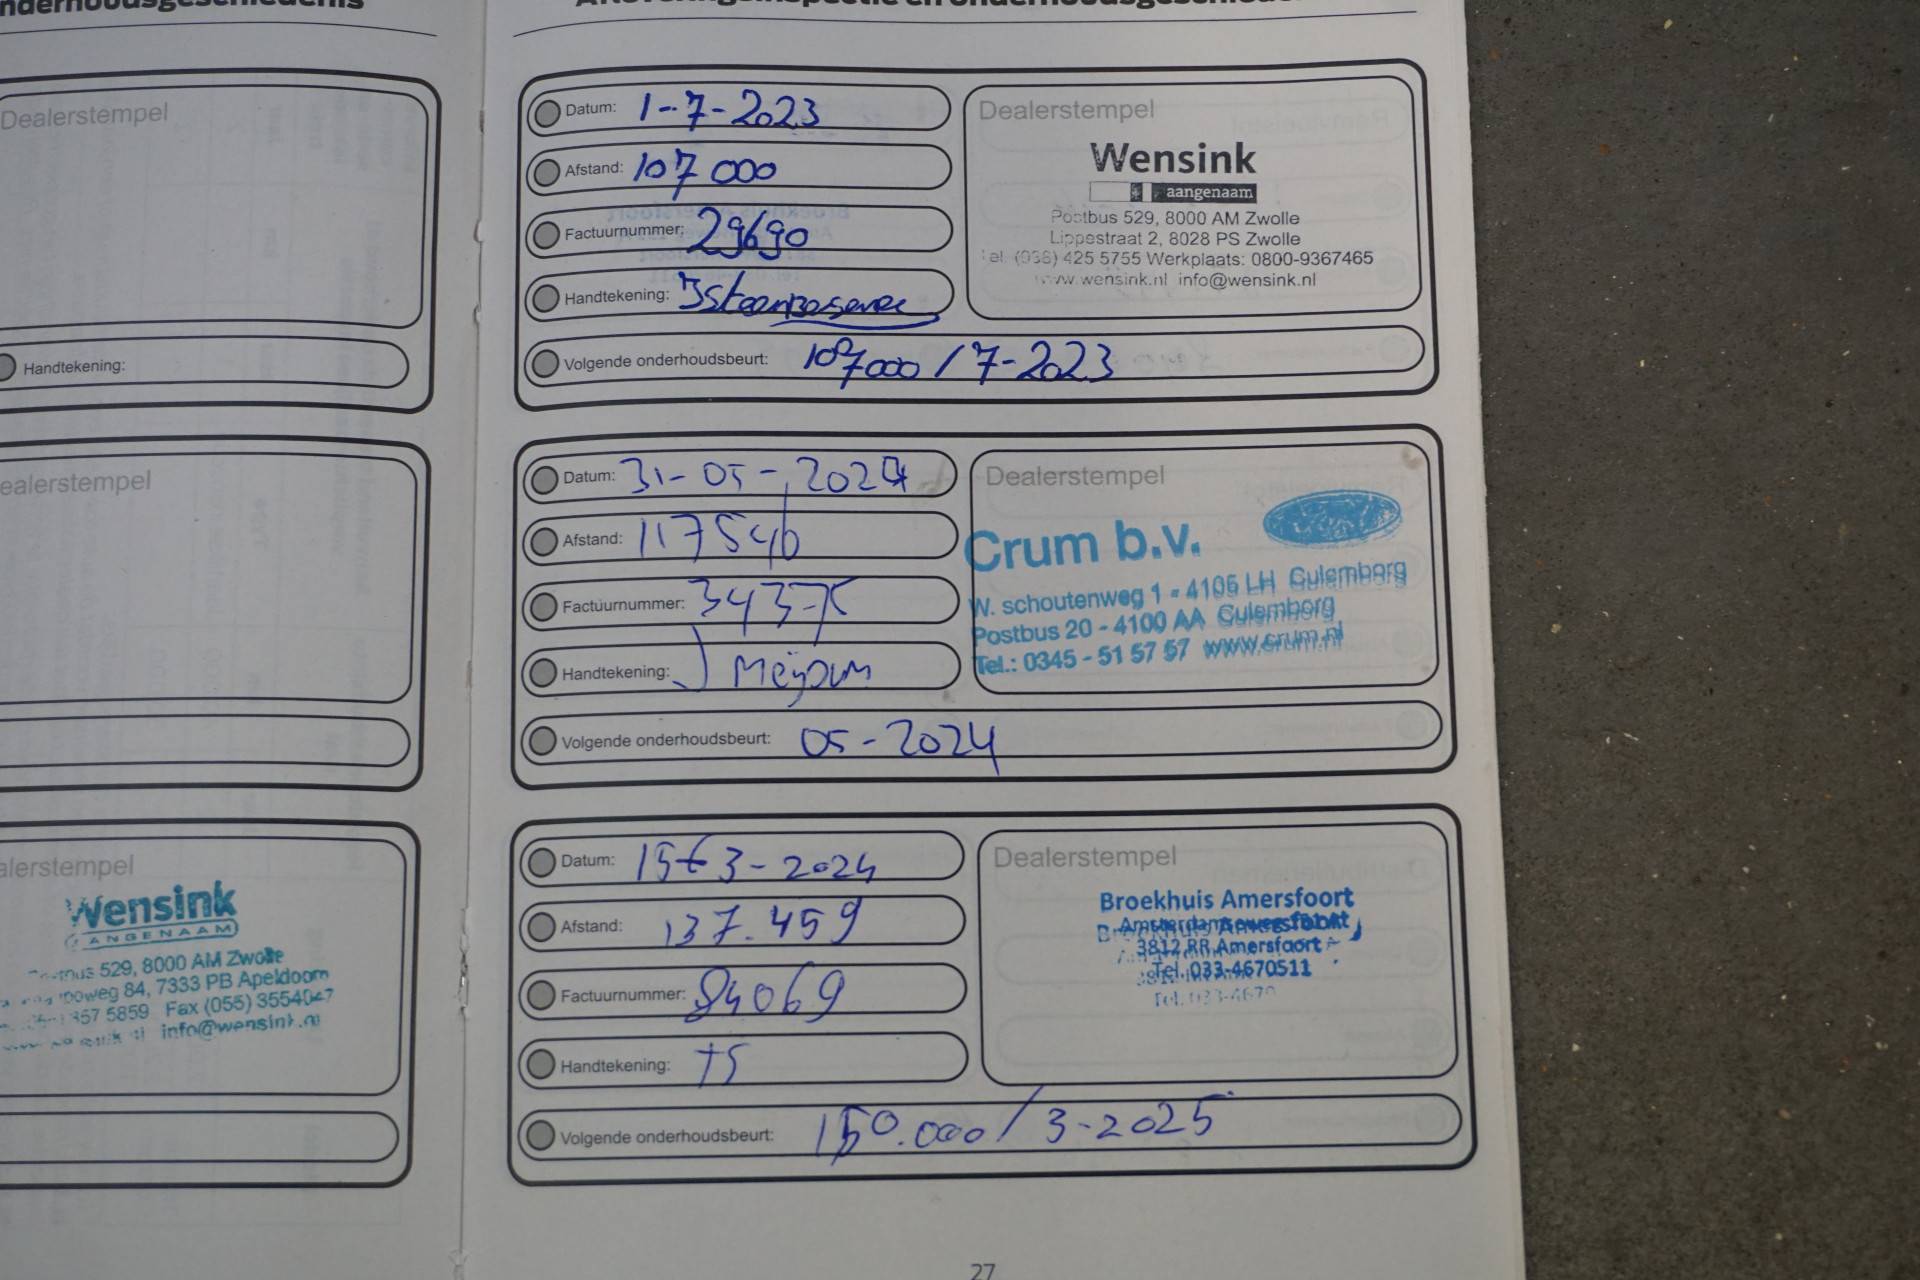 Dealerstempel
Handtekening:
ealerstempel
alerstempel
Wensink
AANGENAAM
529, 8000 AM Zwolle
84, 7333 PB Apeldoorn
357 5859 Fax (055) 3554047
info@wensink.nl
Datum: 1-7-2023
Afstand: 107 000
Factuurnummer: 29690
Handtekening:
Volgende onderhoudsbeurt: 107000 / 7-2023
Dealerstempel
Wensink
aangenaam
Postbus 529, 8000 AM Zwolle
Lippestraat 2, 8028 PS Zwolle
Tel. (038) 425 5755 Werkplaats: 0800-9367465
www.wensink.nl info@wensink.nl
Datum: 31-05-2024
Afstand: 117546
Factuurnummer: 34375
Handtekening:
Volgende onderhoudsbeurt: 05-2024
Dealerstempel
Crum b.v.
W. schoutenweg 1 - 4105 LH Culemborg
Postbus 20 - 4100 AA Culemborg
Tel.: 0345 - 51 57 57 www.crum.nl
Datum: 15-3-2024
Afstand: 137.459
Factuurnummer: 84069
Handtekening: TS
Volgende onderhoudsbeurt: 150.000 / 3-2025
Dealerstempel
Broekhuis Amersfoort
3812 RR Amersfoort
Tel. 033-4670511
27